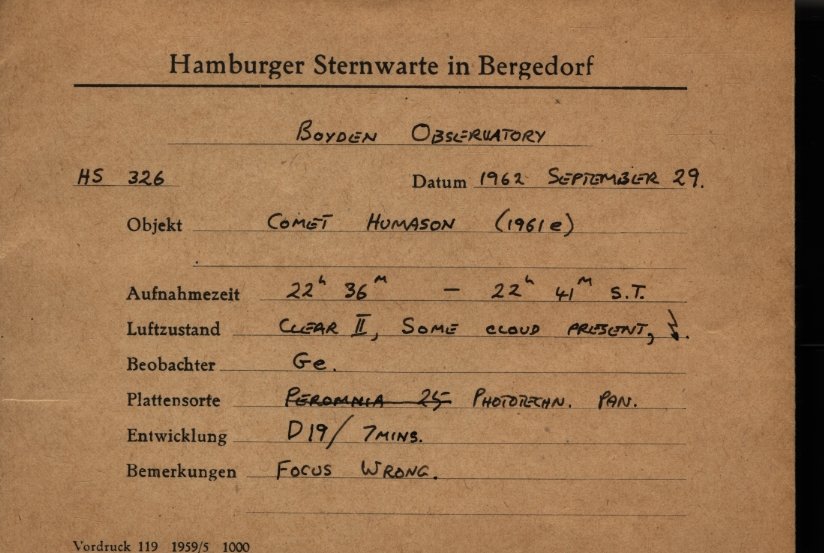 Hamburger Sternwarte in Bergedorf
BOYDEN OBSERVATORY
HS 326 Datum 1962 SEPTEMBER 29.
Objekt COMET HUMASON (1961e)
Aufnahmezeit 22ʰ 36ᵐ — 22ʰ 41ᵐ S.T.
Luftzustand CLEAR II, SOME CLOUD PRESENT,
Beobachter Ge.
Plattensorte PEROMNIA 25 PHOTOTECHN. PAN.
Entwicklung D19/ 7MINS.
Bemerkungen FOCUS WRONG.
Vordruck 119 1959/5 1000